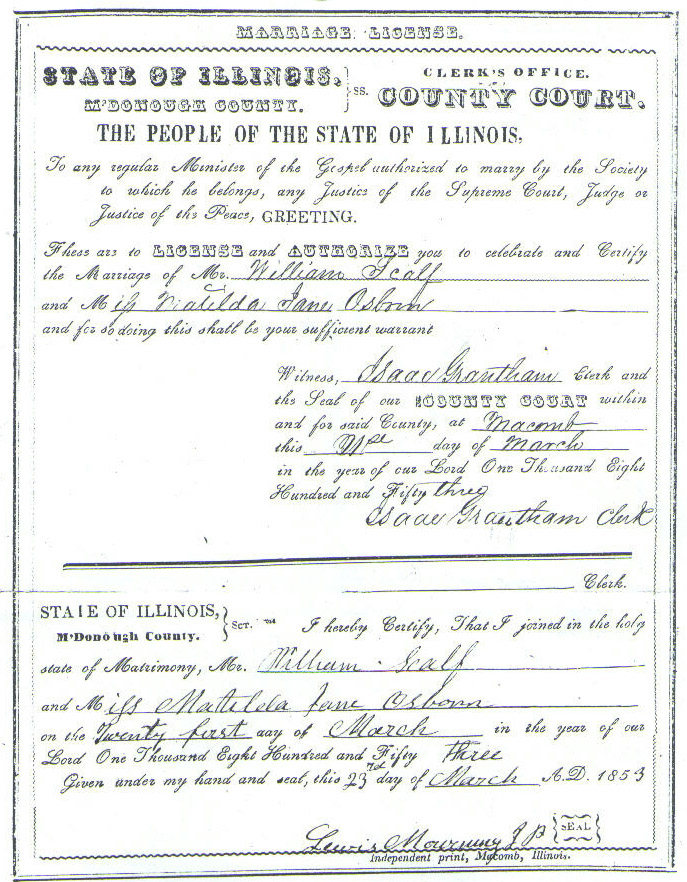 MARRIAGE LICENSE.
STATE OF ILLINOIS, } ss. CLERK'S OFFICE.
M'DONOUGH COUNTY. COUNTY COURT.
THE PEOPLE OF THE STATE OF ILLINOIS,
To any regular Minister of the Gospel authorized to marry by the Society
to which he belongs, any Justice of the Supreme Court, Judge or
Justice of the Peace, GREETING.
These are to LICENSE and AUTHORIZE you to celebrate and Certify
the Marriage of Mr. William Scalf
and Miss Matilda Jane Osborn
and for so doing this shall be your sufficient warrant
Witness, Isaac Grantham Clerk and
the Seal of our COUNTY COURT within
and for said County, at Macomb
this day of March
in the year of our Lord One Thousand Eight
Hundred and Fifty three
Isaac Grantham Clerk
Clerk.
STATE OF ILLINOIS, } Sct.
M'Donough County.
I hereby Certify, That I joined in the holy
state of Matrimony, Mr. William Scalf
and Miss Matilda Jane Osborn
on the Twenty first day of March in the year of our
Lord One Thousand Eight Hundred and Fifty Three
Given under my hand and seal, this 23rd day of March A.D. 1853
Lewis Mourning J P {SEAL}
Independent print, Macomb, Illinois.